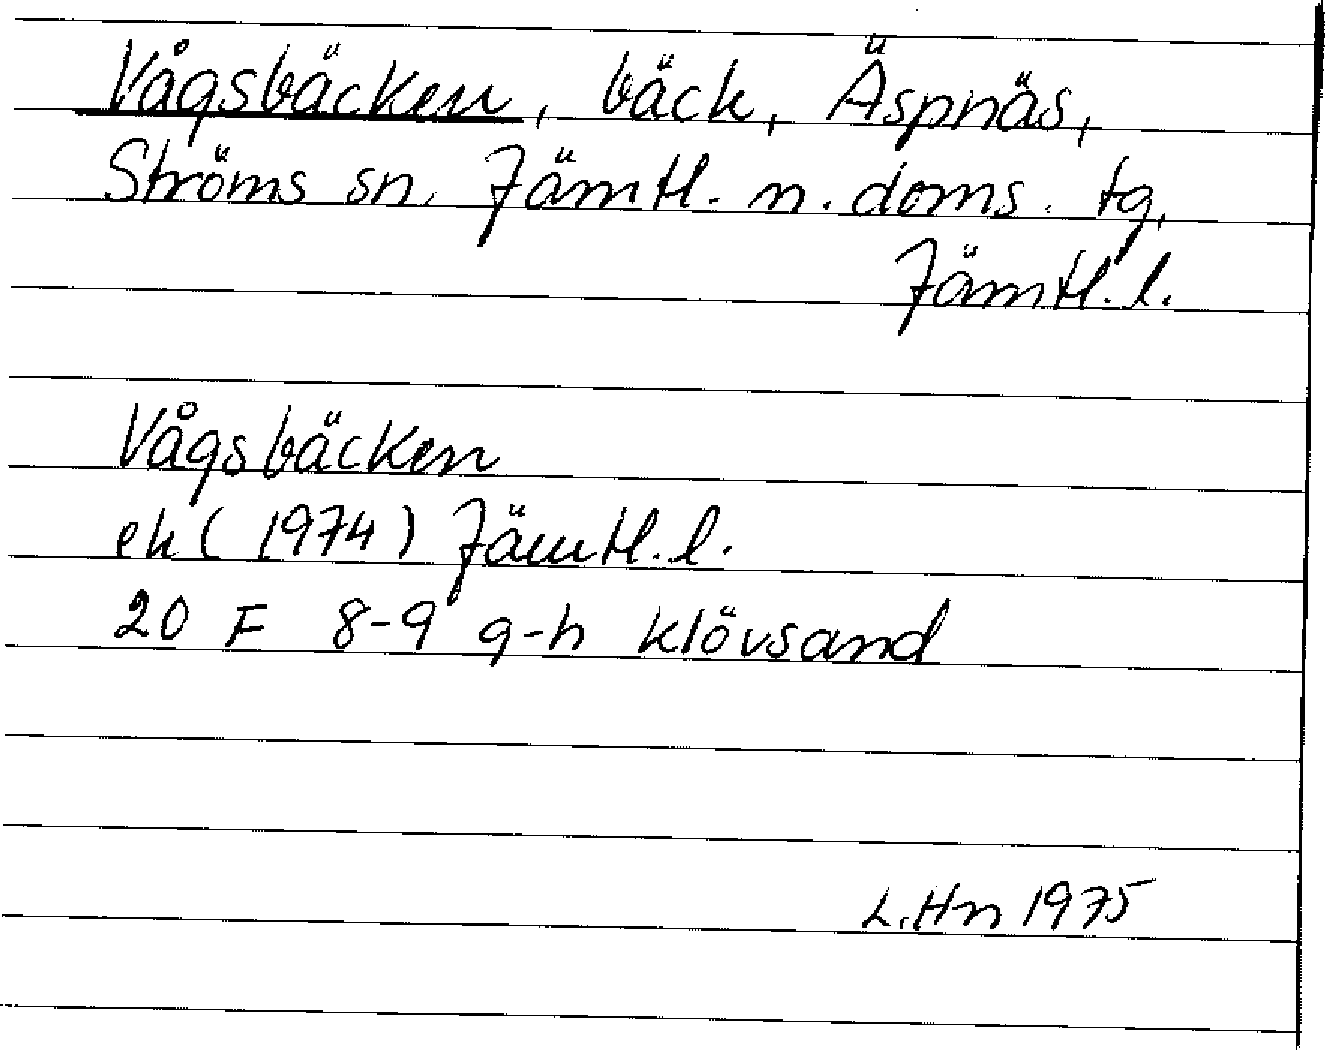 Vågsbäcken, bäck, Äspnäs,
Ströms sn. Jämtl. n. doms. tg,
Jämtl. l.
Vågsbäcken
ek (1974) Jämtl. l.
20 F 8-9 g-h klövsand
L. Hn 1975